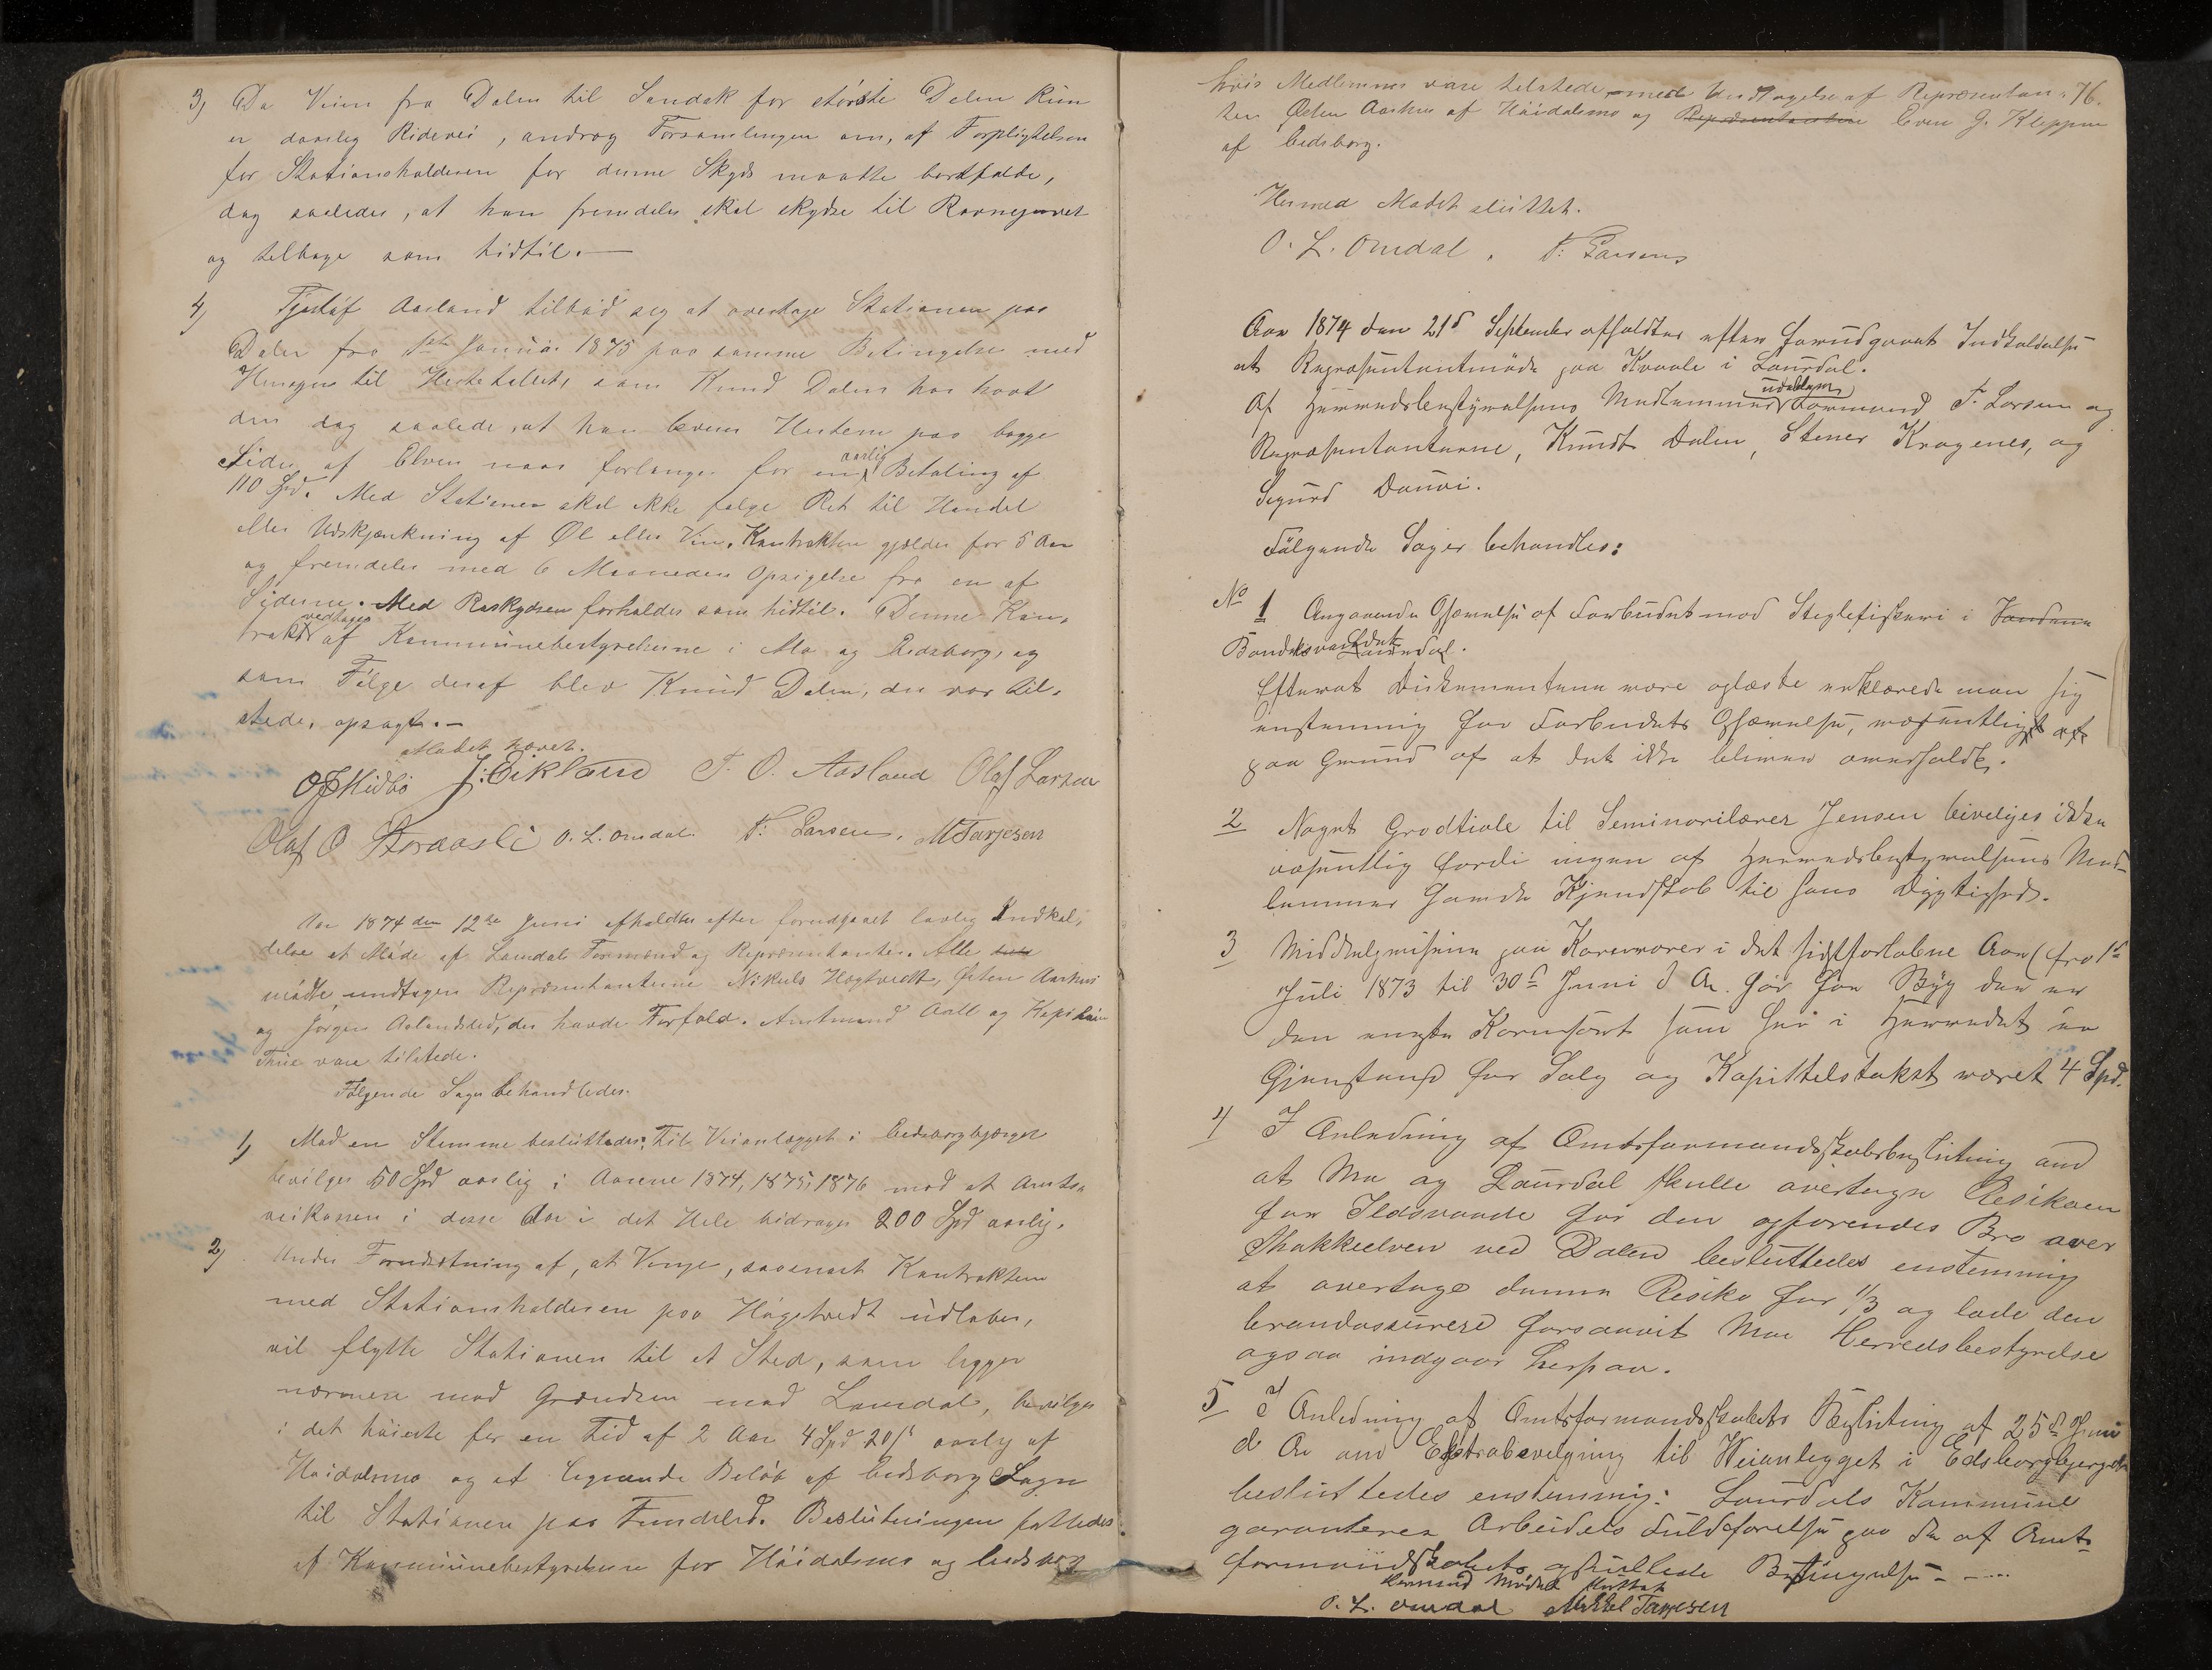 3) Da Veien fra Dalen til Landsk for største Delen kun
er daarlig Ridevei, androg Forsamlingen om, at Forpligtelsen
for Stationsholderen for denne Skyds maatte bortfalde,
dog saaledes, at han fremdeles skal skydse til Ravnejuvet
og tilbage som hidtil. —
4) Tjostolf Aasland tilbød sig at overtage Stationen paa
Dalen fra 1ste Januar 1875 paa samme Betingelse med
Hensyn til Hestetallet, som Knud Dalen har havt
den dog saalede, at han leverer Hestene paa begge
Sider af Elven naar forlanges for en aarlig Betaling af
110 Spd. Med Stationen skal ikke følge Ret til Handel
eller Udskjænkning af Øl eller Vin. Kontrakten gjælder for 5 Aar
og fremdeles med 6 Maaneders Opsigelse fra en af
Siderne. Med Raskydsen forholdes som hidtil. Denne Kon-
trakt vedtages af Kommunebestyrelserne i Mo og Eidsborg, og
som Følge deraf blev Knud Dalen, der var til-
stede, opsagt. —
Mødet hævet.
J. Eikland T. O. Aasland Olaf Larsen
Olaf O Storaasli O. L. Omdal. T. Larsen. M Tarjesen
Aar 1874 den 12te Juni afholdtes efter forudgaaet lovlig Indkal-
delse et Møde af Laurdals Formænd og Repræsentanter. Alle
mødte undtagen Repræsentanterne Nikuls Høgtvedt, Østen Aarhus
og Jørgen Aalandslid, der havde Forfald. Amtmand Aall og Kaptein
Thue vare tilstede.
Følgende Sager behandledes.
1) Mod en Stemme besluttedes: Til Veianlægget i Eidsborgbjerget
bevilges 50 Spd aarlig i Aarene 1874, 1875, 1876 mod at Amts-
veikassen i disse Aar i det Hele bidrager 200 Spd aarlig.
2) Under Forudsetning af, at Vinje, saasnart Kontrakten
med Stationsholderen paa Høgetvedt udløber,
vil flytte Stationen til et Sted, som ligger
nærmere mod Grændsen mod Laurdal, bevilges
i det høieste for en Tid af 2 Aar 4 Spd 20 s aarlig af
Høidalsmo og et lignende Beløb af Eidsborg Sogn
til Stationen paa Fundlid. Beslutningen fattedes
af Kommunebestyrelserne for Høidalsmo og Eidsborg
hvis Medlemmer vare tilstede med Undtagelse af Repræsentan- 76.
ten Østen Aarhus af Høidalsmo og Repræsentanten Even G. Kleppen
af Eidsborg.
Hermed Mødet sluttet.
O. L. Omdal. T. Larsens
Aar 1874 den 21d September afholdtes efter forudgaaet Indkaldelse
et Repræsentantmøde paa Kvaale i Laurdal.
Af Herredsbestyrelsens Medlemmer udeblev Formand T. Larsen og
Repræsentanterne, Knudt Dalen, Stener Kragenes, og
Sigurd Dauvi.
Følgende Sager behandles:
No 1 Angaaende Ophævelse af Forbudet mod Steglefiskeri i Vandene
Bandaksvandet Laurdal.
Efterat Dokumenterne vare oplæste erklærede man sig
enstemmig for Forbudets Ophævelse, væsentligst
paa Grund af at det ikke bliver overholdt.
2 Noget Grødtiole til Seminarilærer Jensen bevilges ikke
væsentlig fordi ingen af Herredsbestyrelsens Med-
lemmer havde Kjendskab til hans Dygtighed.
3 Middelprisene paa Kornvarer i det sidstforløbne Aar (fra 1d
Juli 1873 til 30d Juni d. A. har for Byg der er
den eneste Kornsort som her i Herredet er
Gjenstand for Salg og Kapittelstakst været 4 Spd.
4 I Anledning af Amtsformandskabsbeslutning om
at Mo og Laurdal skulle overtage Risikoen
for Ildsvaade for den opførendes Bro over
Thokkeelven ved Dalen besluttedes enstemmig
at overtage denne Risiko for 1/3 og lade den
brandassurere forsaavit Moe Herredsbestyrelse
ogsaa indgaar herpaa.
5 I Anledning af Amtsformandskabets Beslutning af 25d Juni
d. A om Ekstrabevilgning til Veianlegget i Edsborgbjerget
besluttedes enstemmig: Laurdals Kommune
garanterer Arbeidets Fuldførelse paa de af Amts-
formandskabets opstillede Betingelse - - ...
Hermed Mødet sluttet
O. L. Omdal Mikkel Tarjesen